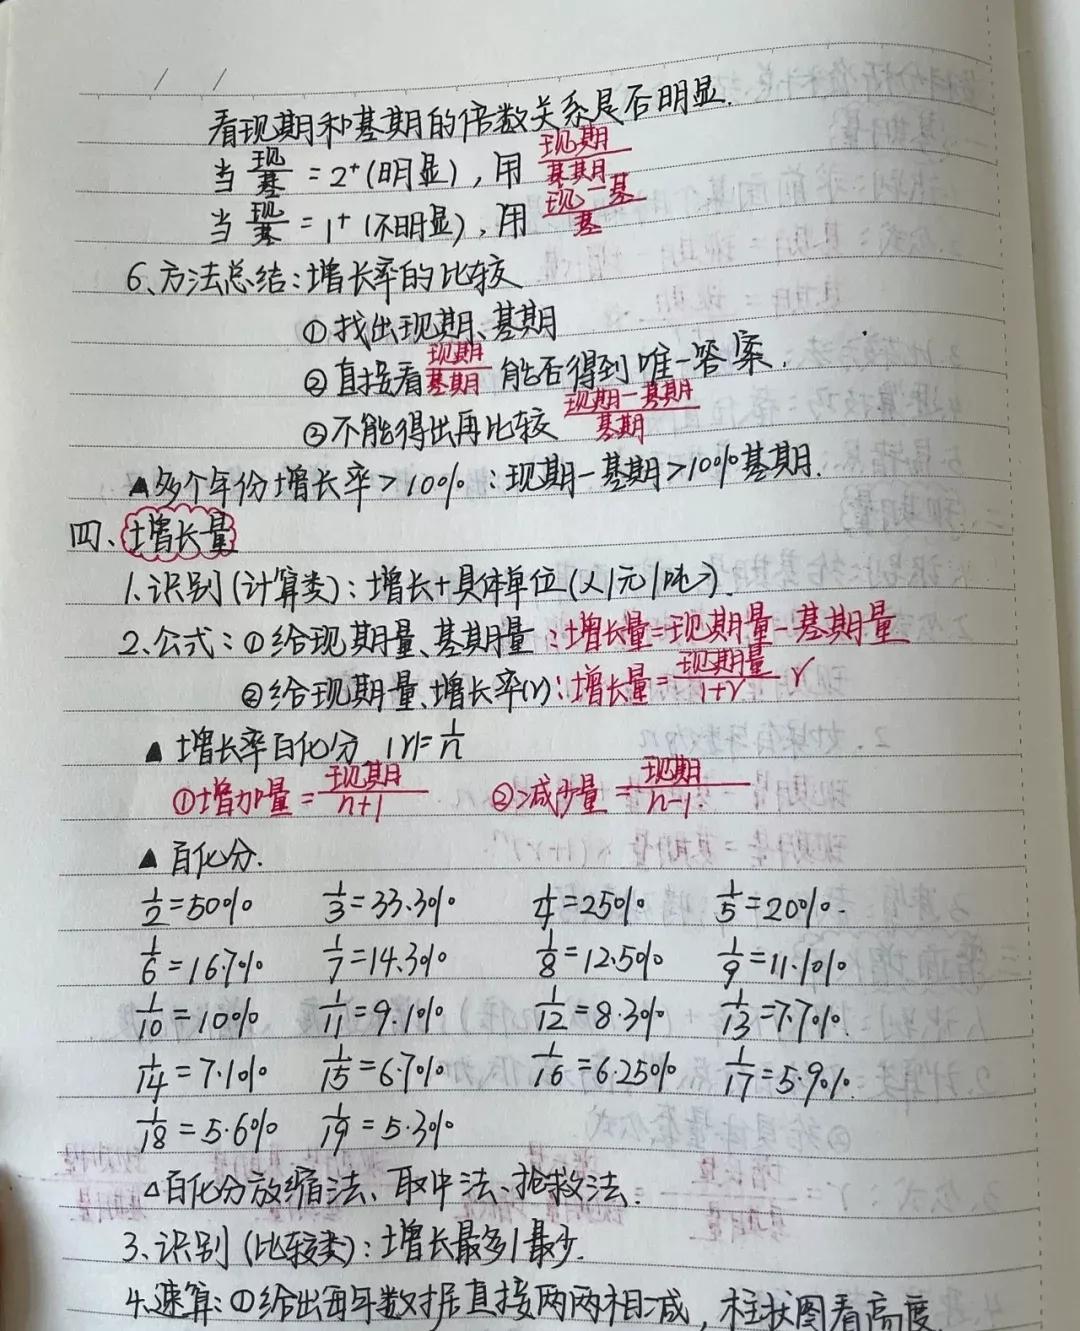 看现期和基期的倍数关系是否明显.
当现/基=2⁺(明显),用现期/基期
当现/基=1⁺(不明显),用现-基/基
6、方法总结:增长率的比较
①找出现期、基期
②直接看现期/基期能否得到唯一答案.
③不能得出再比较现期-基期/基期
▲多个年份增长率>10%:现期-基期>10%基期.
四、增长量
1.识别(计算类):增长+具体单位(人/元/吨).
2.公式:①给现期量、基期量:增长量=现期量-基期量
②给现期量、增长率(r):增长量=现期量/1+r r
▲增长率百化分 |r|=1/n
①增加量=现期/n+1 ②减少量=现期/n-1
▲百化分.
1/2=50% 1/3=33.3% 1/4=25% 1/5=20%.
1/6=16.7% 1/7=14.3% 1/8=12.5% 1/9=11.1%
1/10=10% 1/11=9.1% 1/12=8.3% 1/13=7.7%.
1/14=7.1% 1/15=6.7% 1/16=6.25% 1/17=5.9%.
1/18=5.6% 1/19=5.3%
△百化分放缩法、取中法、抢救法.
3、识别(比较类):增长最多/最少.
4.速算:①给出每年数据直接两两相减,柱状图看高度.